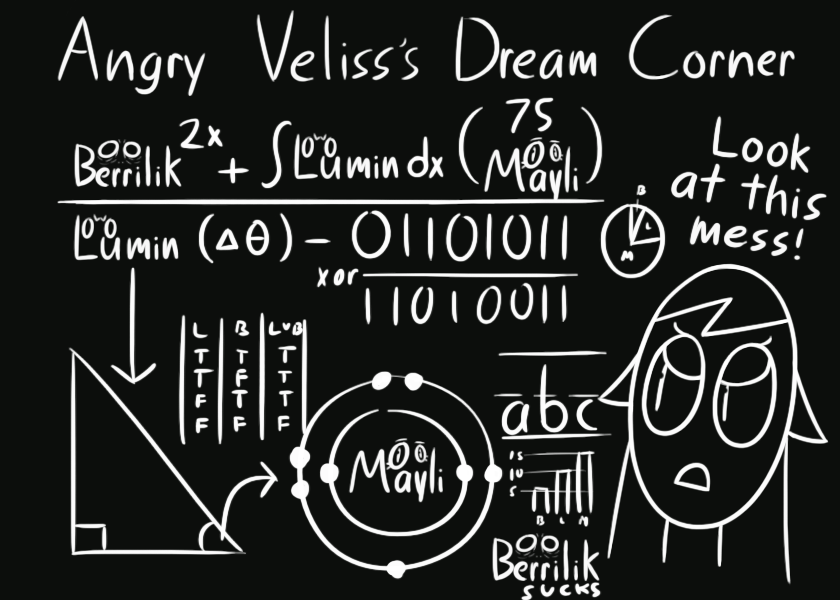 Angry Veliss's Dream Corner
Berrilik 2x + ∫Lumin dx (75 Mayli)
Lumin (Δθ) - 01101011
xor
11010011
B
L
M
Look
at this
mess!
L B LvB
T T T
T F T
F T T
F F F
Mayli
abc
15
10
5
B L M
Berrilik
sucks